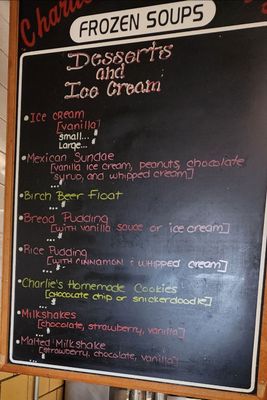 Charlie
FROZEN SOUPS
Desserts
and
Ice Cream
Ice cream
[vanilla]
small...
Large...
Mexican Sundae
[vanilla ice cream, peanuts, chocolate
syrup, and whipped cream]
Birch Beer Float
Bread Pudding
[with vanilla sauce or ice cream]
Rice Pudding
[with cinnamon & whipped cream]
Charlie's Homemade Cookies
[chocolate chip or snickerdoodle]
Milkshakes
[chocolate, strawberry, vanilla]
Malted Milkshake
[strawberry, chocolate, vanilla]